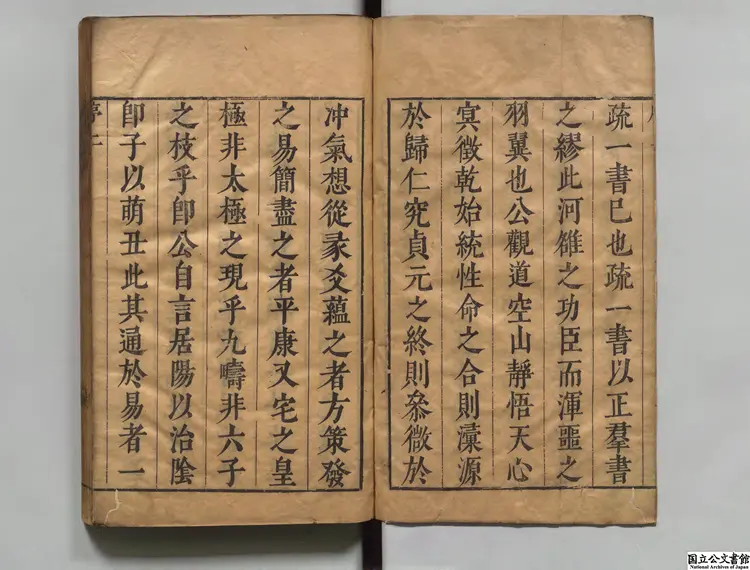 疏一書已也疏一書以正羣書
之繆此河雒之功臣而渾噩之
羽翼也公觀道空山靜悟天心
㝠徵乾始統性命之合則濬源
於歸仁究貞元之終則叅微於
冲氣想從彖爻蘊之者方策發
之易簡盡之者平康又宅之皇
極非太極之現乎九疇非六子
之枝乎卽公自言居陽以治陰
卽子以萌丑此其通於易者一
序二
国立公文書館
National Archives of Japan